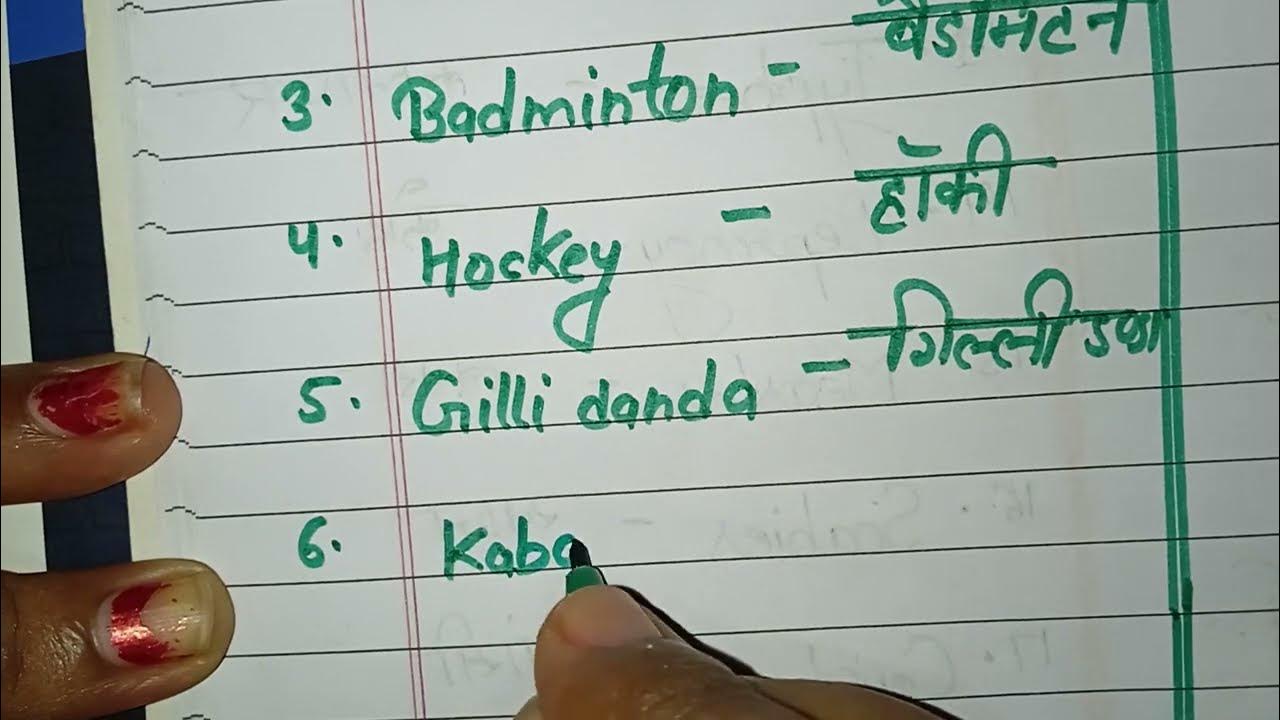 3. Badminton - बैडमिंटन
4. Hockey - हॉकी
5. Gilli danda - गिल्ली डण्डा
6. Kaba